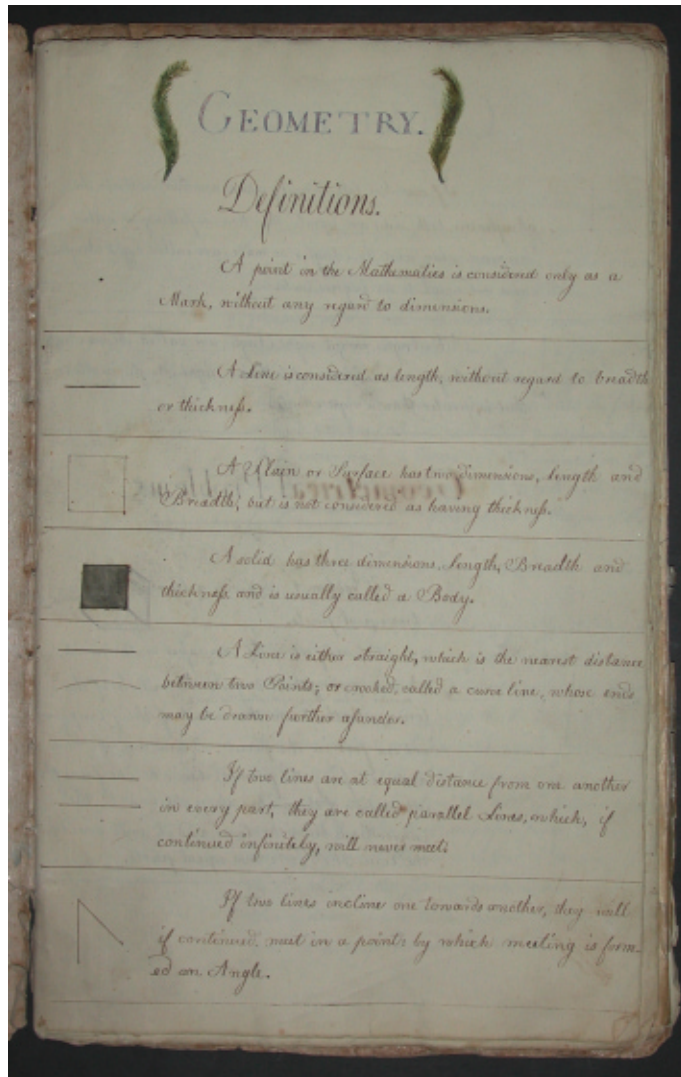 GEOMETRY.
Definitions.
A point in the Mathematics is considered only as a
Mark, without any regard to dimensions.
A Line is considered as length, without regard to breadth
or thickneſs.
A Plain or Surface has two dimensions, length and
Breadth, but is not considered as having thickneſs.
A solid has three dimensions, length, Breadth and
thickneſs and is usually called a Body.
A Line is either straight, which is the nearest distance
between two Points; or crooked, called a curve line, whose ends
may be drawn further aſunder.
If two lines are at equal distance from one another
in every part, they are called parallel Lines, which, if
continued infinitely, will never meet.
If two lines incline one towards another, they will
if continued, meet in a point: by which meeting is form-
ed an Angle.